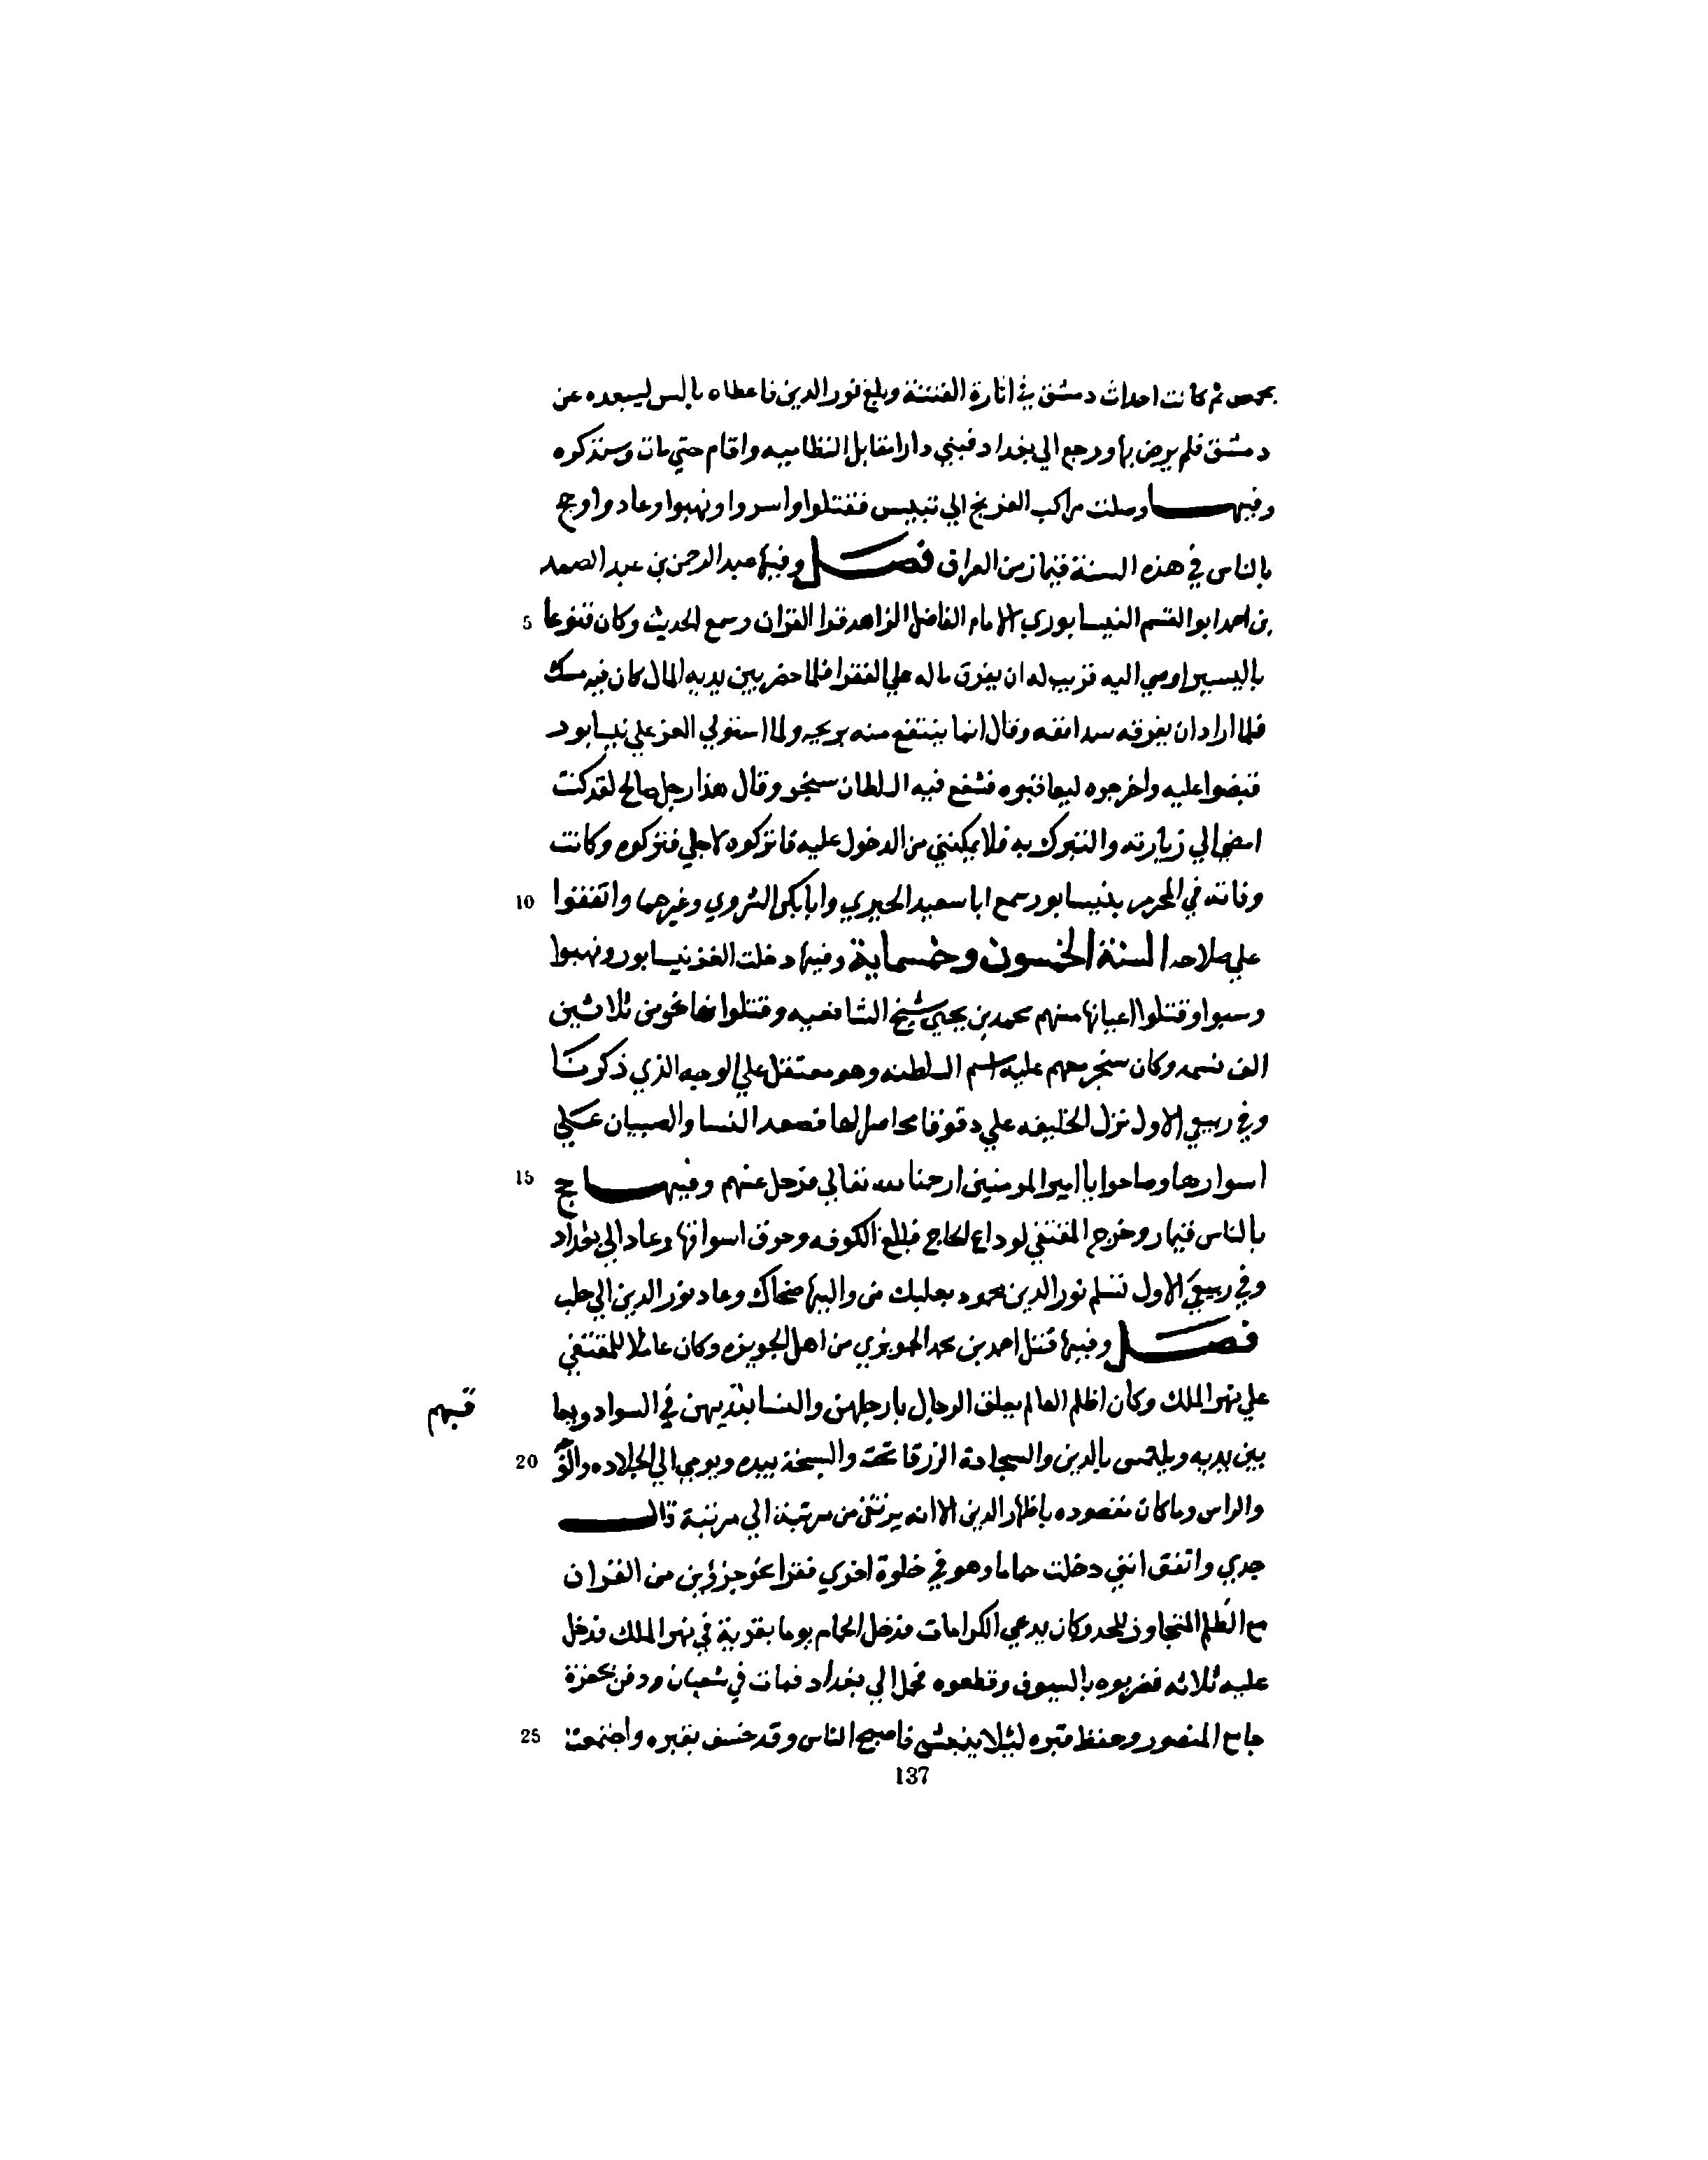 بحمص ثم كاتب احداث دمشق في اثارة الفتنة وبلغ نور الدين فاعطاه بالس ليبعده عن
دمشق فلم يرض بها ورجع الي بغداد فبني دارا مقابل النظاميه واقام حتي مات وسنذكره
وفيها وصلت مراكب الفرنج الي تنيس فقتلوا واسروا ونهبوا وعادوا وحج
بالناس في هذه السنة قيماز من العراق فصل وفيها عبد الرحمن بن عبد الصمد
بن احمد ابو القسم النيسابوري الامام الفاضل الزاهد قرا القران وسمع الحديث وكان قنوعا 5
باليسير اوصي اليه قريب له ان يفرق ماله علي الفقرا فلما حضر بين يديه المال كان فيه مسك
فلما اراد ان يفرقه سد انفه وقال انما ينتفع منه بريحه ولما استولي الغز علي نيسابور
قبضوا عليه واخرجوه ليعاقبوه فشفع فيه السلطان سنجر وقال هذا رجل صالح لقد كنت
امضي الي زيارته والتبرك به فلا يمكنني من الدخول عليه فاتركوه لاجلي فتركوه وكانت
وفاته في المحرم بنيسابور سمع ابا سعيد الحيري وابا بكر الشروي وغيرهما واتفقوا 10
علي صلاحه السنة الخمسون وخمسماية وفيها دخلت الغز نيسابور ونهبوا
وسبوا وقتلوا اعيانها منهم محمد بن يحيي شيخ الشافعيه وقتلوا بها نحو من ثلاثين
الف نسمه وكان سنجر معهم عليه اسم السلطنه وهو معتقل علي الوجه الذي ذكرنا
وفي ربيع الاول نزل الخليفه علي دقوقا محاصرا لها فصعد النسا والصبيان علي
اسوارها وصاحوا يا امير المومنين ارحمنا لله تعالي فرحل عنهم وفيها حج 15
بالناس قيماز وخرج المقتفي لوداع الحاج فبلغ الكوفه وخرق اسواقها وعاد الي بغداد
وفي ربيع الاول تسلم نور الدين محمود بعلبك من واليها ضحاك وعاد نور الدين الي حلب
فصل وفيها قتل احمد بن محمد الحويزي من اهل الحويزه وكان عاملا للمقتفي
علي نهر الملك وكان اظلم العالم يعلق الرجال بارجلهن والنسا بثديهن في السواد ويعا
قبهم
بين يديه ويلتمس بالدين والسجادة الزرقا تحته والسبحة بيده ويومي الي الجلاده 20
والراس وما كان مقصوده باظهار الدين الا انه يرتقي من مرتبة الي مرتبة قال
جدي واتفق انني دخلت حماما وهو في خلوة اخري فقرا نحو جزؤين من القران
مع الظلم المتجاوز للحد وكان يدعي الكرامات فدخل الحمام يوما بقرية في نهر الملك فدخل
عليه ثلاثه فضربوه بالسيوف وقطعوه فحمل الي بغداد فمات في شعبان ودفن بحفرة
جامع المنصور وحفظ قبره ليلا ينبش فاصبح الناس وقد خسف بقبره واجتمعت 25
137